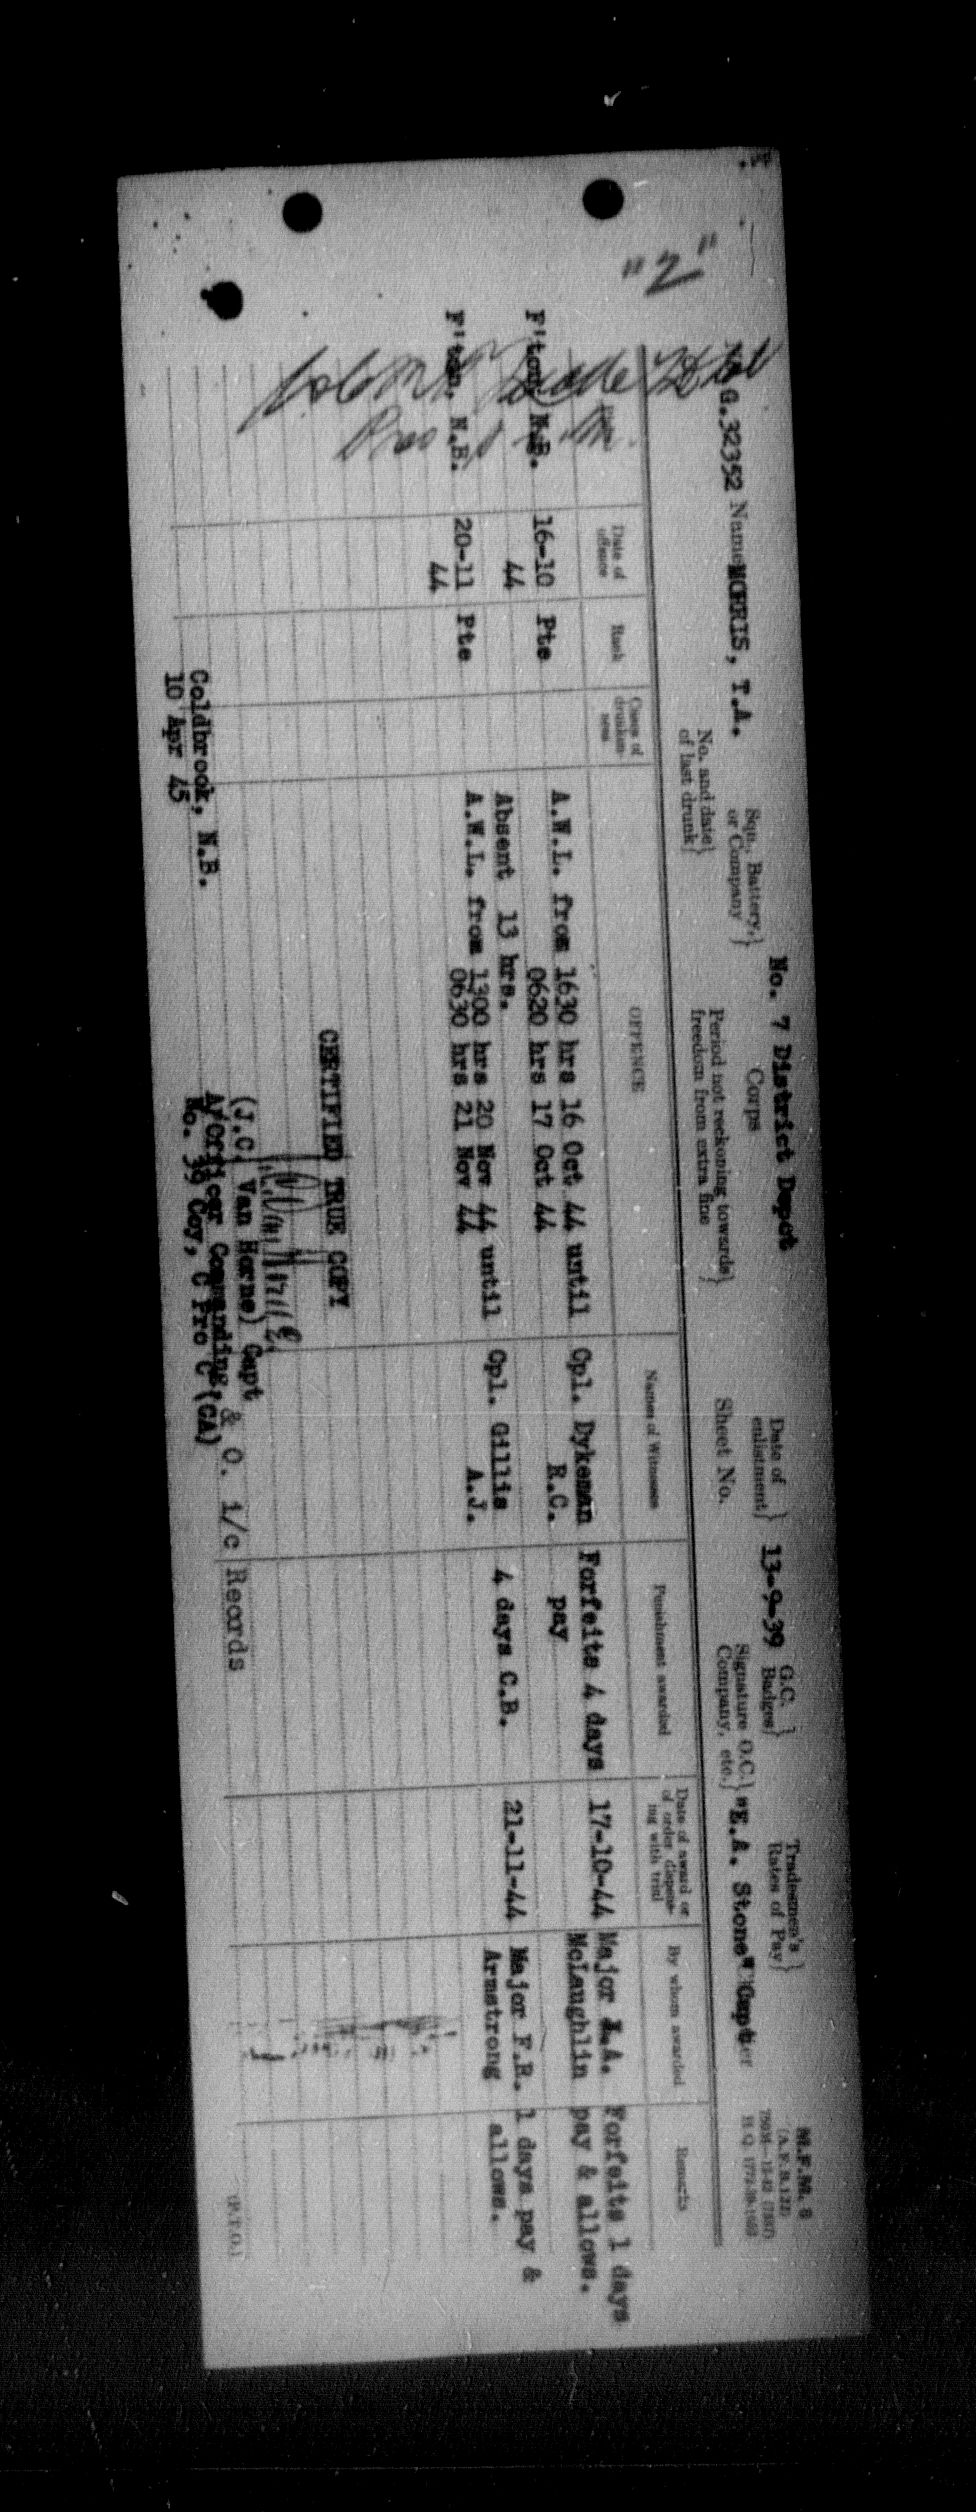 "Z"
M.F.M. 6
No. 7 District Depot
Sqn., Battery, or Company
Corps
Date of enlistment 13-9-39
G.C. Badges
Tradesmen's Rates of Pay
No. G.32352 Name MORRIS, T.A.
No. and date of last drunk
Period not reckoning towards freedom from extra fine
Sheet No.
Signature O.C. Company, etc. "E.A. Stone" Capt
Date of offence
Rank
Cases of drunkenness
OFFENCE
Names of Witnesses
Punishment awarded
Date of award or of order dispensing with trial
By whom awarded
Remarks
F'ton, N.B. 16-10 Pte A.W.L. from 1630 hrs 16 Oct 44 until Cpl. Dykeman Forfeits 4 days 17-10-44 Major L.A. Forfeits 1 days
44 0620 hrs 17 Oct 44 R.C. pay McLaughlin pay & allows.
Absent 13 hrs.
F'ton, N.B. 20-11 Pte A.W.L. from 1300 hrs 20 Nov 44 until Cpl. Gillis 4 days C.B. 21-11-44 Major F.R. 1 days pay &
44 0630 hrs 21 Nov 44 A.J. Armstrong allows.
CERTIFIED TRUE COPY
(J.C. Van Horne) Capt
A/Officer Commanding, & O. i/c Records
No. 39 Coy, C Pro C (CA)
Coldbrook, N.B.
10 Apr 45
(P.T.O.)